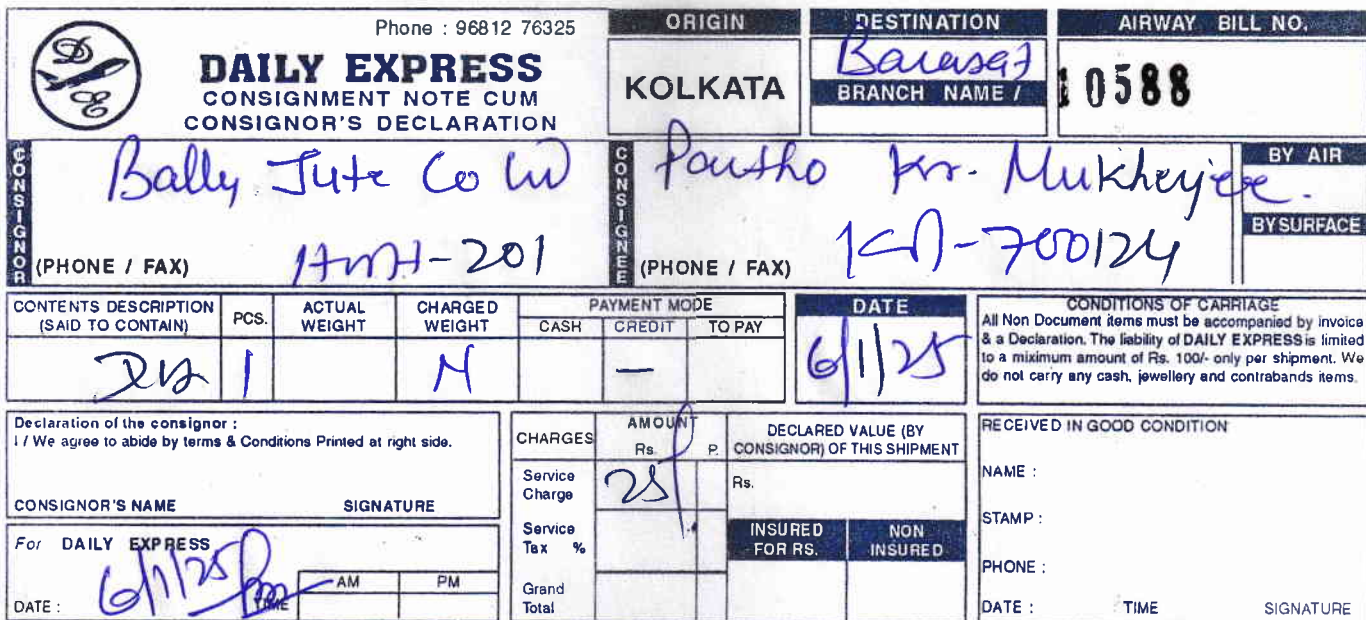 D
E
Phone : 96812 76325
DAILY EXPRESS
CONSIGNMENT NOTE CUM
CONSIGNOR'S DECLARATION
ORIGIN
KOLKATA
DESTINATION
Barasat
BRANCH NAME /
AIRWAY BILL NO.
10588
CONSIGNOR
Bally Jute Co
(PHONE / FAX)
-201
CONSIGNEE
Kr. Mukherjee.
(PHONE / FAX)
-700124
BY AIR
BY SURFACE
CONTENTS DESCRIPTION
(SAID TO CONTAIN)
PCS.
1
ACTUAL
WEIGHT
CHARGED
WEIGHT
N
PAYMENT MODE
CASH
CREDIT
—
TO PAY
DATE
6/1/25
CONDITIONS OF CARRIAGE
All Non Document items must be accompanied by invoice
& a Declaration. The liability of DAILY EXPRESS is limited
to a miximum amount of Rs. 100/- only per shipment. We
do not carry any cash, jewellery and contrabands items.
Declaration of the consignor :
I / We agree to abide by terms & Conditions Printed at right side.
CONSIGNOR'S NAME SIGNATURE
For DAILY EXPRESS
6/1/25
DATE :
TIME
AM
PM
CHARGES
AMOUNT
Rs. P.
Service
Charge
25/
Service
Tax %
Grand
Total
DECLARED VALUE (BY
CONSIGNOR) OF THIS SHIPMENT
Rs.
INSURED
FOR RS.
NON
INSURED
RECEIVED IN GOOD CONDITION
NAME :
STAMP :
PHONE :
DATE : TIME SIGNATURE